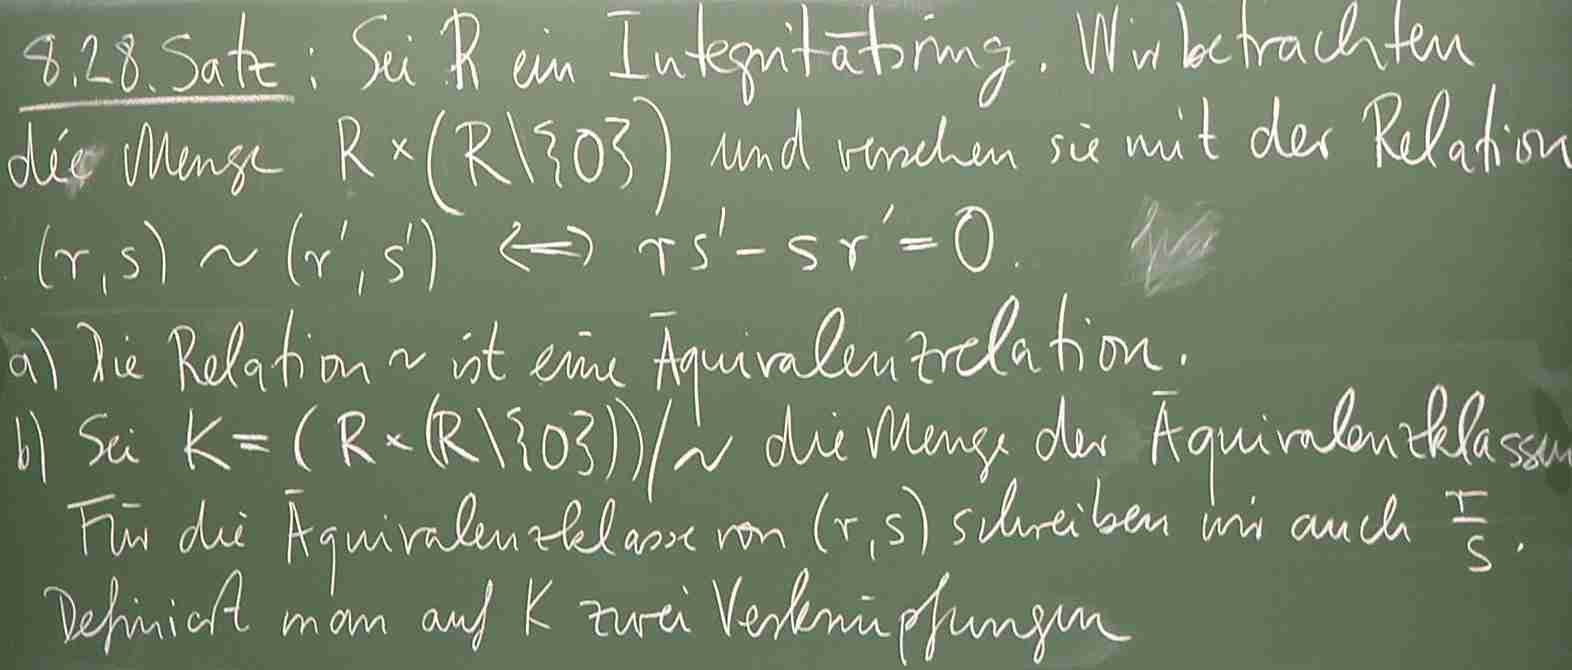 8.28. Satz: Sei R ein Integritätsring. Wir betrachten
die Menge R × (R\{0}) und versehen sie mit der Relation
(r,s) ~ (r',s') ⟺ rs' - sr' = 0.
a) Die Relation ~ ist eine Äquivalenzrelation.
b) Sei K = (R × (R\{0}))/~ die Menge der Äquivalenzklassen
Für die Äquivalenzklasse von (r,s) schreiben wir auch r/s.
Definiert man auf K zwei Verknüpfungen